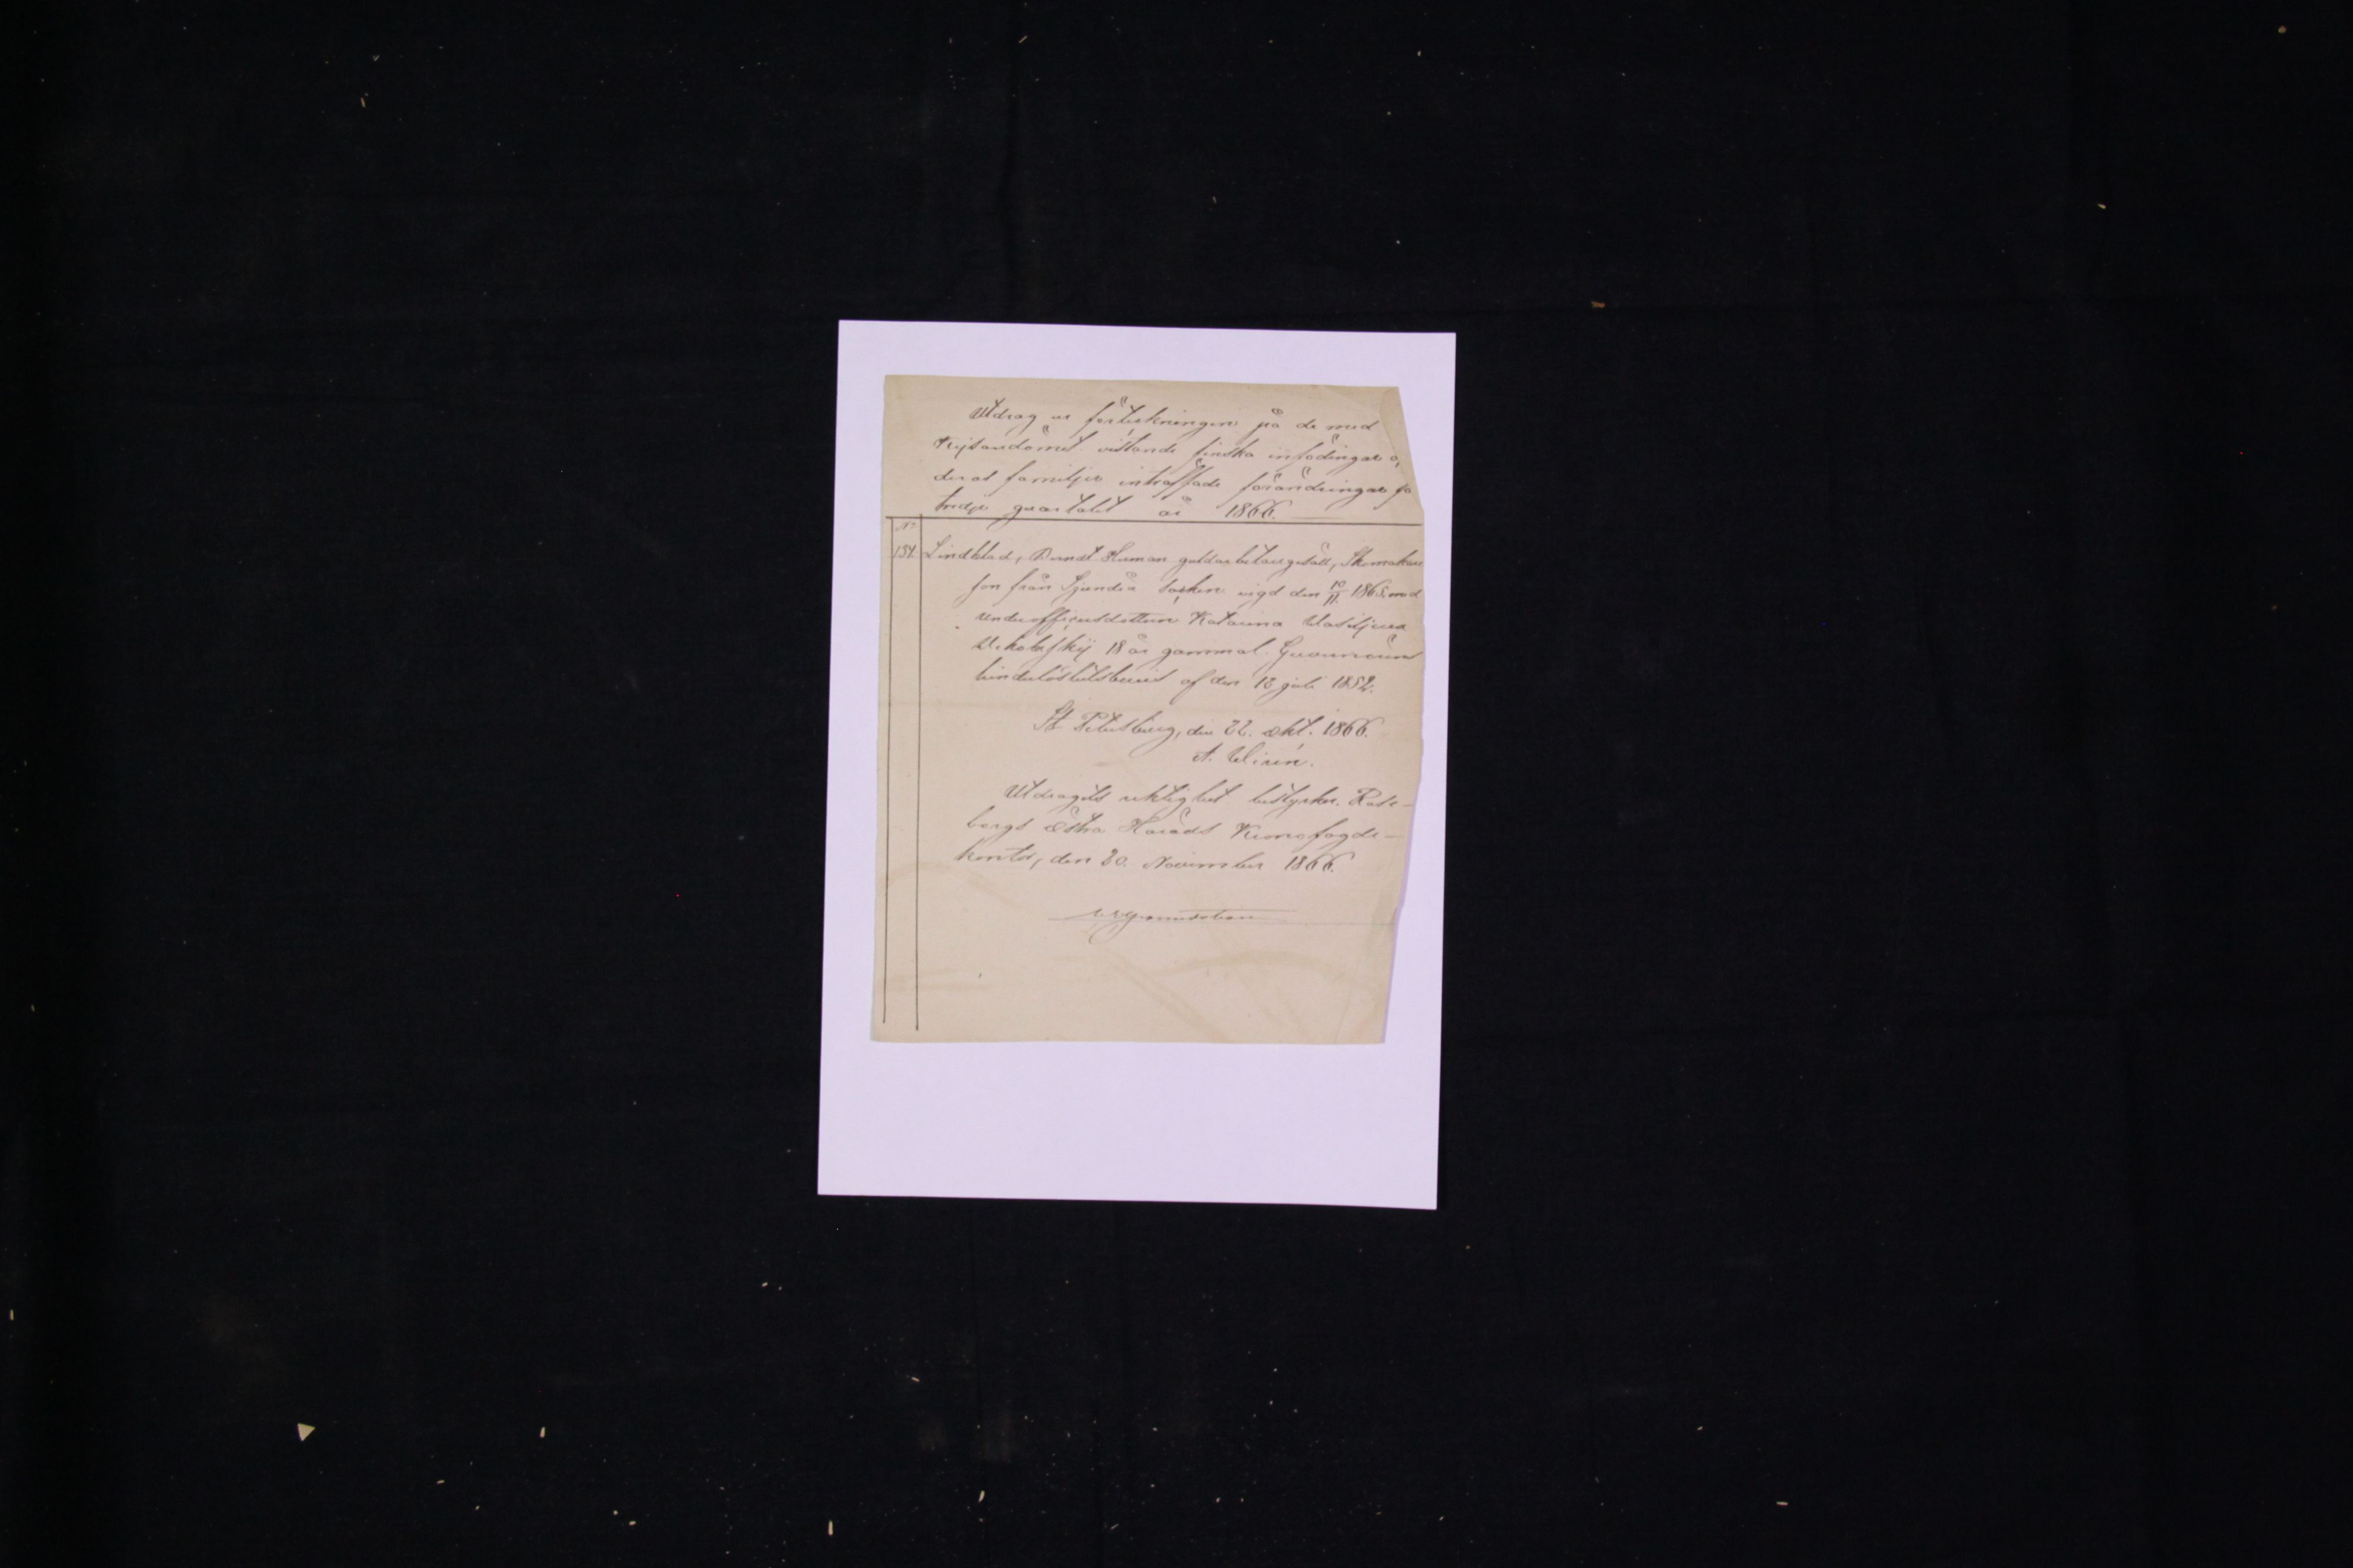 Utdrag ur förteckningen på de med
Kejsardömet vistande finska infödingar o,
deras familjer inträffade förändringar fo
tredje quartalet år 1866.
No
134. Lindblad, Berndt Herman guldarbetaregesäll, Skomakare
son från Sjundeå socken vigd den 10/11. 1865. med
underofficersdottern Katarina Wasiljewa
18 år gammal. Guvernörens
hinderlöshetsbevis af den 12 juli 1852.
St Petersburg, den 22. okt. 1866.
A. Wirén.
Utdragets riktighet bestyrker. Rase-
borgs Östra Härads Kronofogde-
kontor, den 20. November 1866.